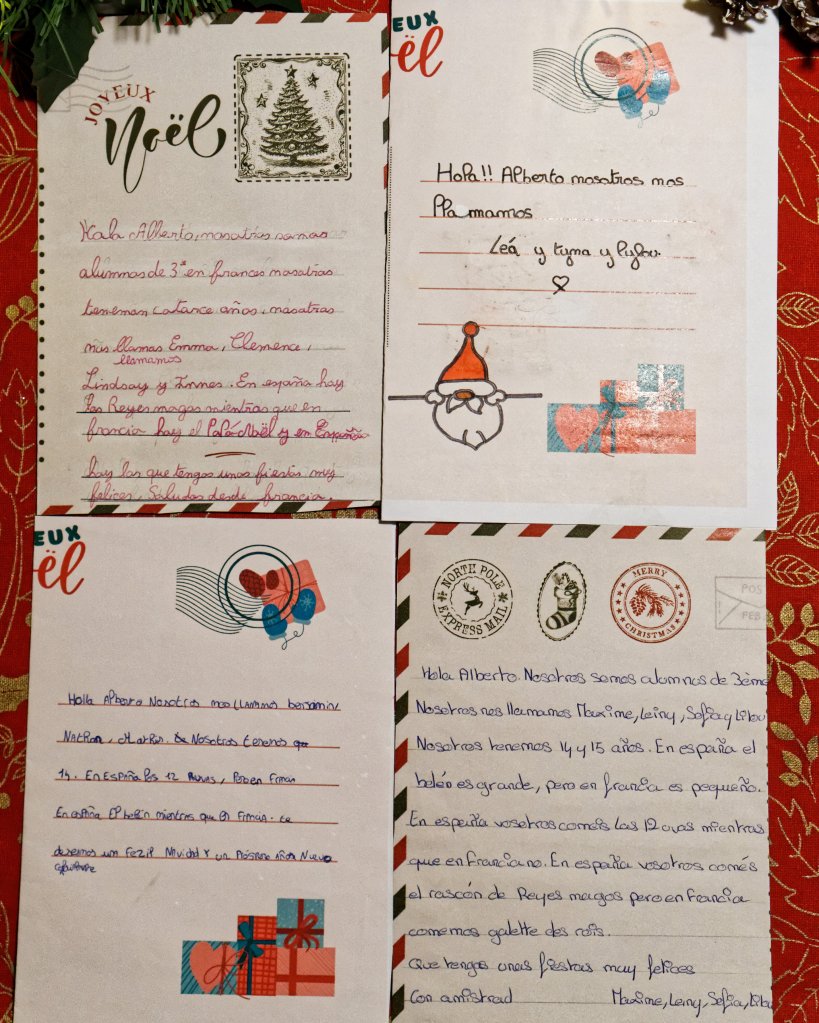 JOYEUX
Noël
Hola Alberto, nosotros somos
alumnos de 3º en francés nosotras
tenemon catorce años, nosotras
nus llamas Emma, Clemence,
llamamos
Lindsay y Innes. En españa hay
Los Reyes magos mientras que en
francia hay el Papá Noël y en España
hay los que tengas unas fiestas muy
felices, Saludos desde francia.
EUX
ël
Hola!! Alberto nosotros nos
llamamos
Leá y tyma y
EUX
ël
Holla Alberto Nosotros nos llammos benjamin
Nathan, Mathis. Nosotros tenemos
14. En ESPAÑA los 12 uvas,
En españa El belin mientras que
deseamos un Feziz Nividad y un Prospero años Nuevo
NORTH POLE
EXPRESS MAIL
MERRY
CHRISTMAS
POS
FEB.
Hola Alberto. Nosotros somos alumnos de 3ème
Nosotros nos llamamos Maxime, Leiny, Sofia y Lilou
Nosotros tenemos 14 y 15 años. En españa el
belén es grande, pero en francia es pequeño.
En españa vosotros comeis las 12 uvas mientras
que en Francia no. En españa vosotros comés
el rascón de Reyes magos pero en Francia
comemos galette des rois.
Que tengas unas fiestas muy felices
Con amistrad Maxime, Leiny, Sofia, Lilou